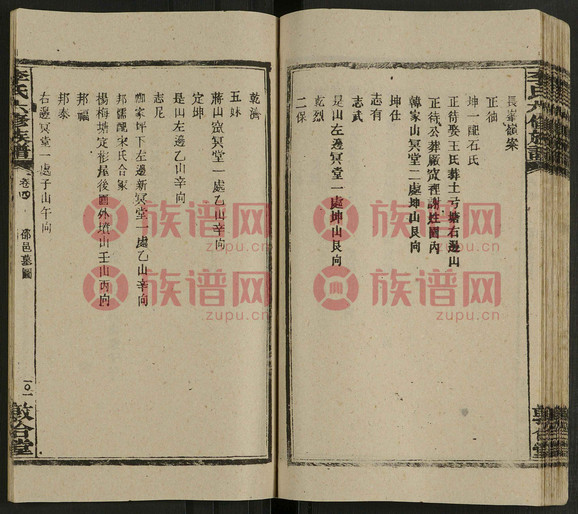 長華嶺案
正徜
坤一配石氏
正待娶王氏葬土弓塘右邊山
正待公葬廠定裡謝姓園內
韓家山冥堂二處坤山艮向
坤仕
志有
志武
乾烈
是山左邊冥堂一處坤山艮向
二保
乾濟
五妹
蔣山窩冥堂一處乙山辛向
定坤
是山左邊乙山辛向
志足
鄭家坪下左邊新冥堂一處乙山辛向
邦儒配宋氏合冢
楊梅塘定衫屋後園外墳山壬山丙向
邦福
邦泰
右邊冥堂一處子山午向
李氏六修族譜
卷四
邵邑墓圖
一〇一
敦倉堂
族谱网
zupu.cn
族谱网
zupu.cn
族谱网
zupu.cn
族谱网
zupu.cn